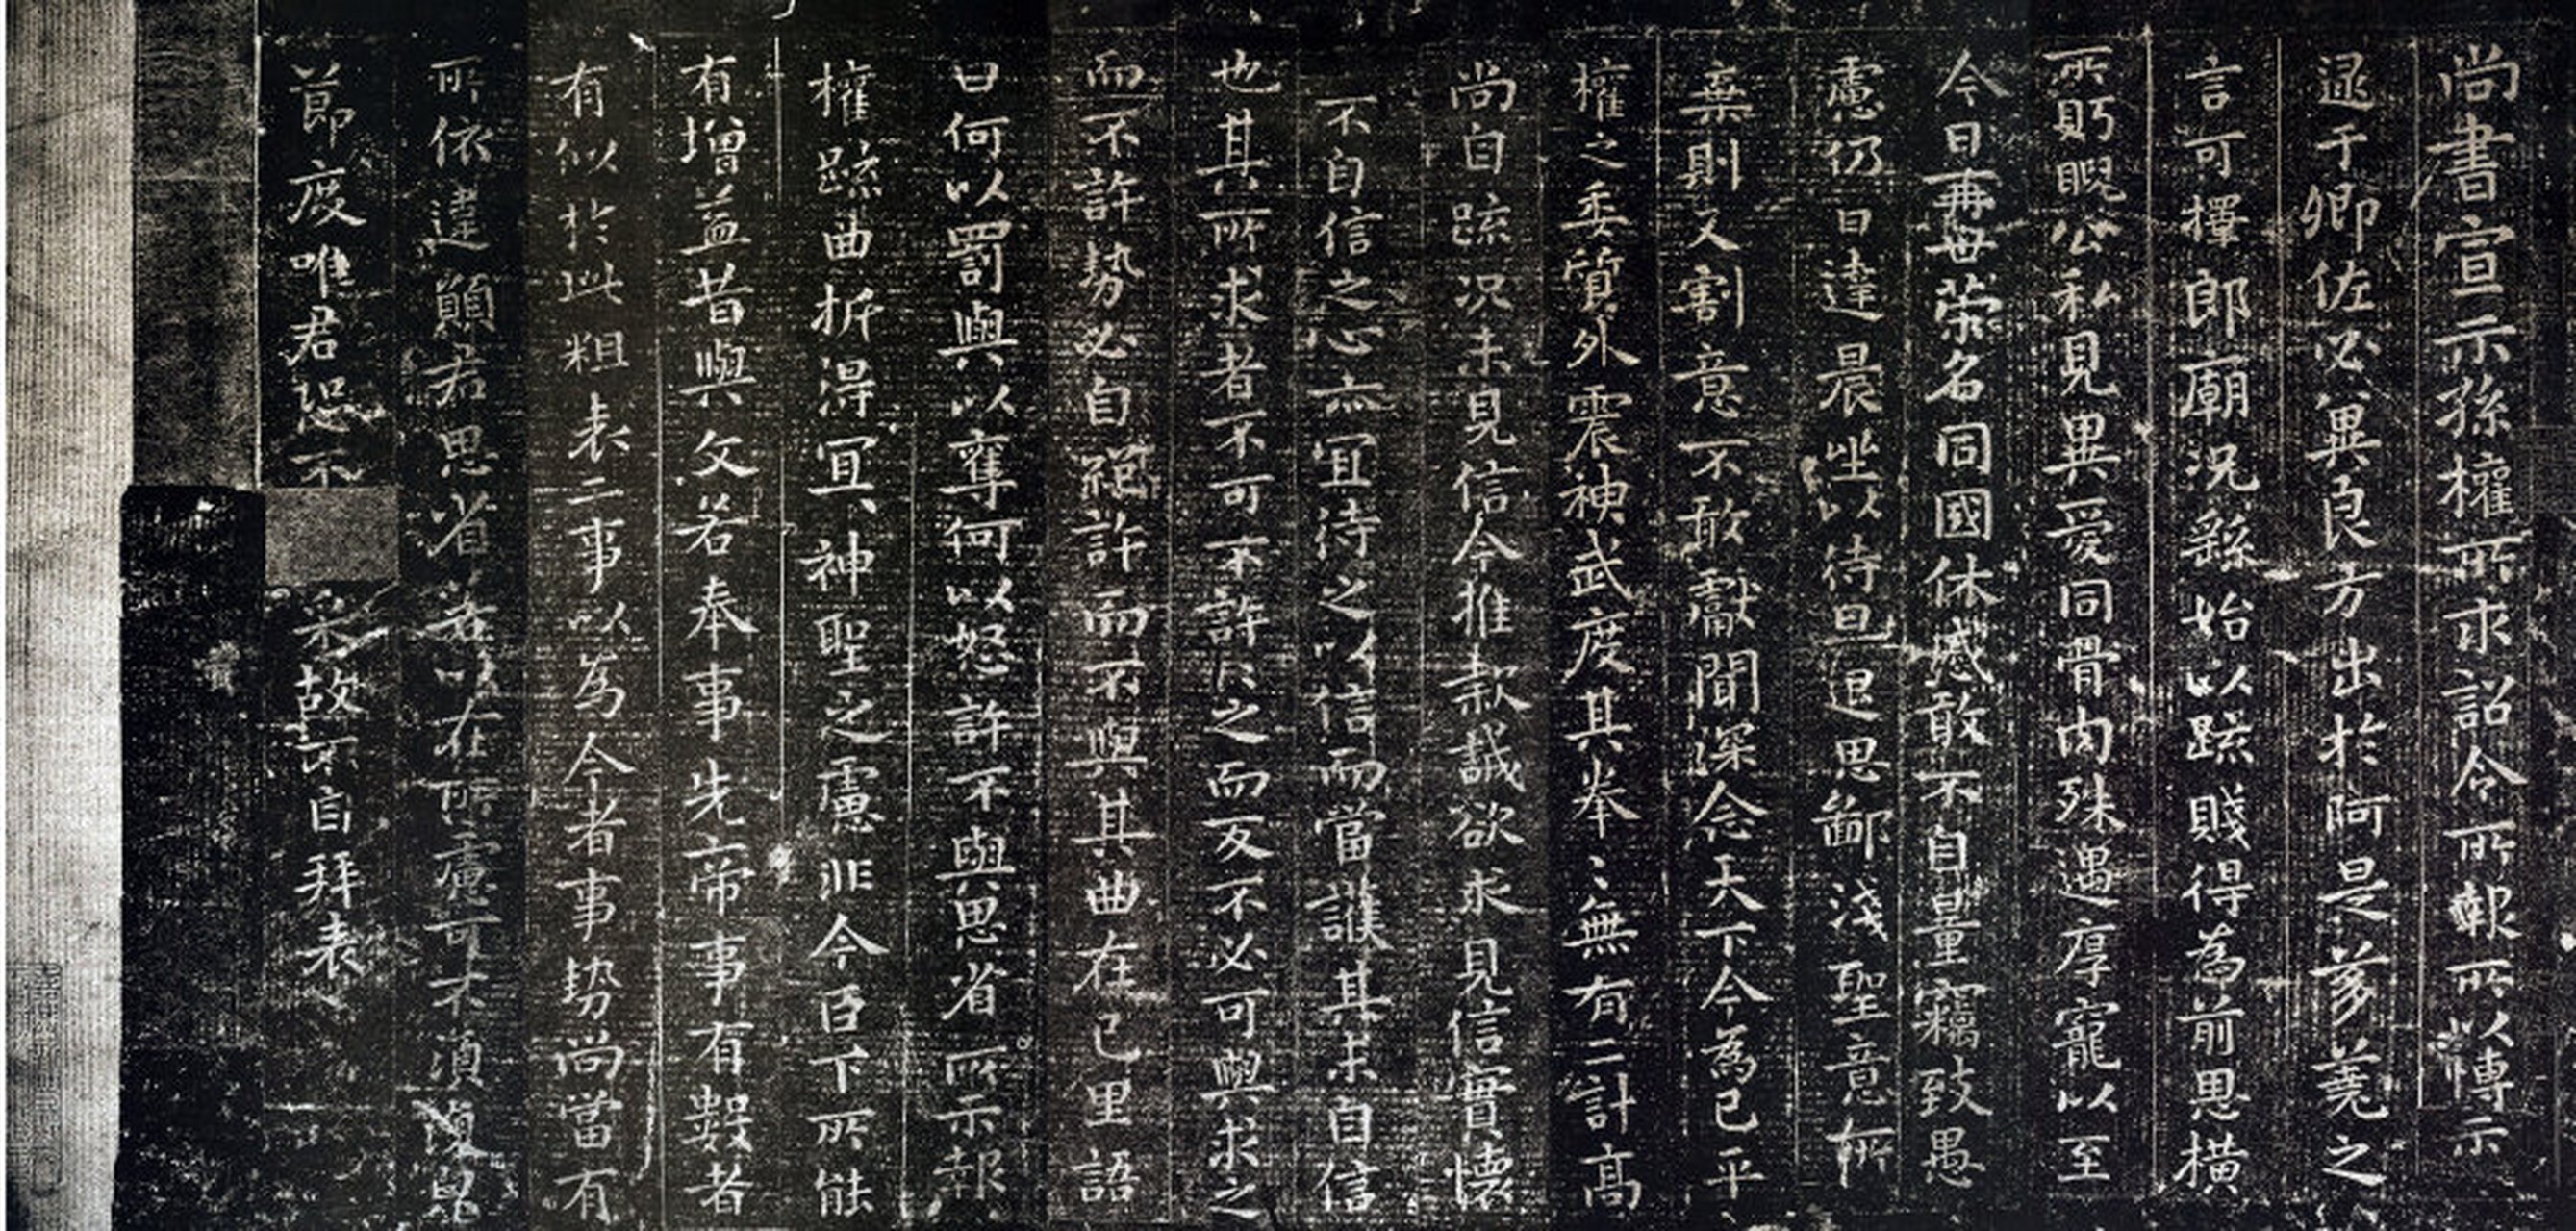 尚書宣示孫權所求詔令所報所以博示
逮于卿佐必異良方出於阿是芻蕘之
言可擇郎廟況繇始以疏賤得為前思橫
所眄睨公私見異愛同骨肉殊遇厚寵以至
今日再世榮名同國休慼敢不自量竊致愚
慮仍日達晨坐以待旦退思鄙淺聖意所
棄則又割意不敢獻聞深念天下今為已平
權之委質外震神武度其拳〻無有二計高
尚自疏況未見信今推款誠欲求見信實懷
不自信之心亦宜待之以信而當護其未自信
也其所求者不可不許許之而反不必可與求之
而不許勢必自絕許而不與其曲在己里語
曰何以罰與以奪何以怒許不與思省所示報
權疏曲折得宜神聖之慮非今臣下所能
有增益昔與文若奉事先帝事有數者
有似於此粗表二事以為今者事勢尚當有
所依違願君思省若以在所慮可不須復皃
節度唯君恐不采故不自拜表